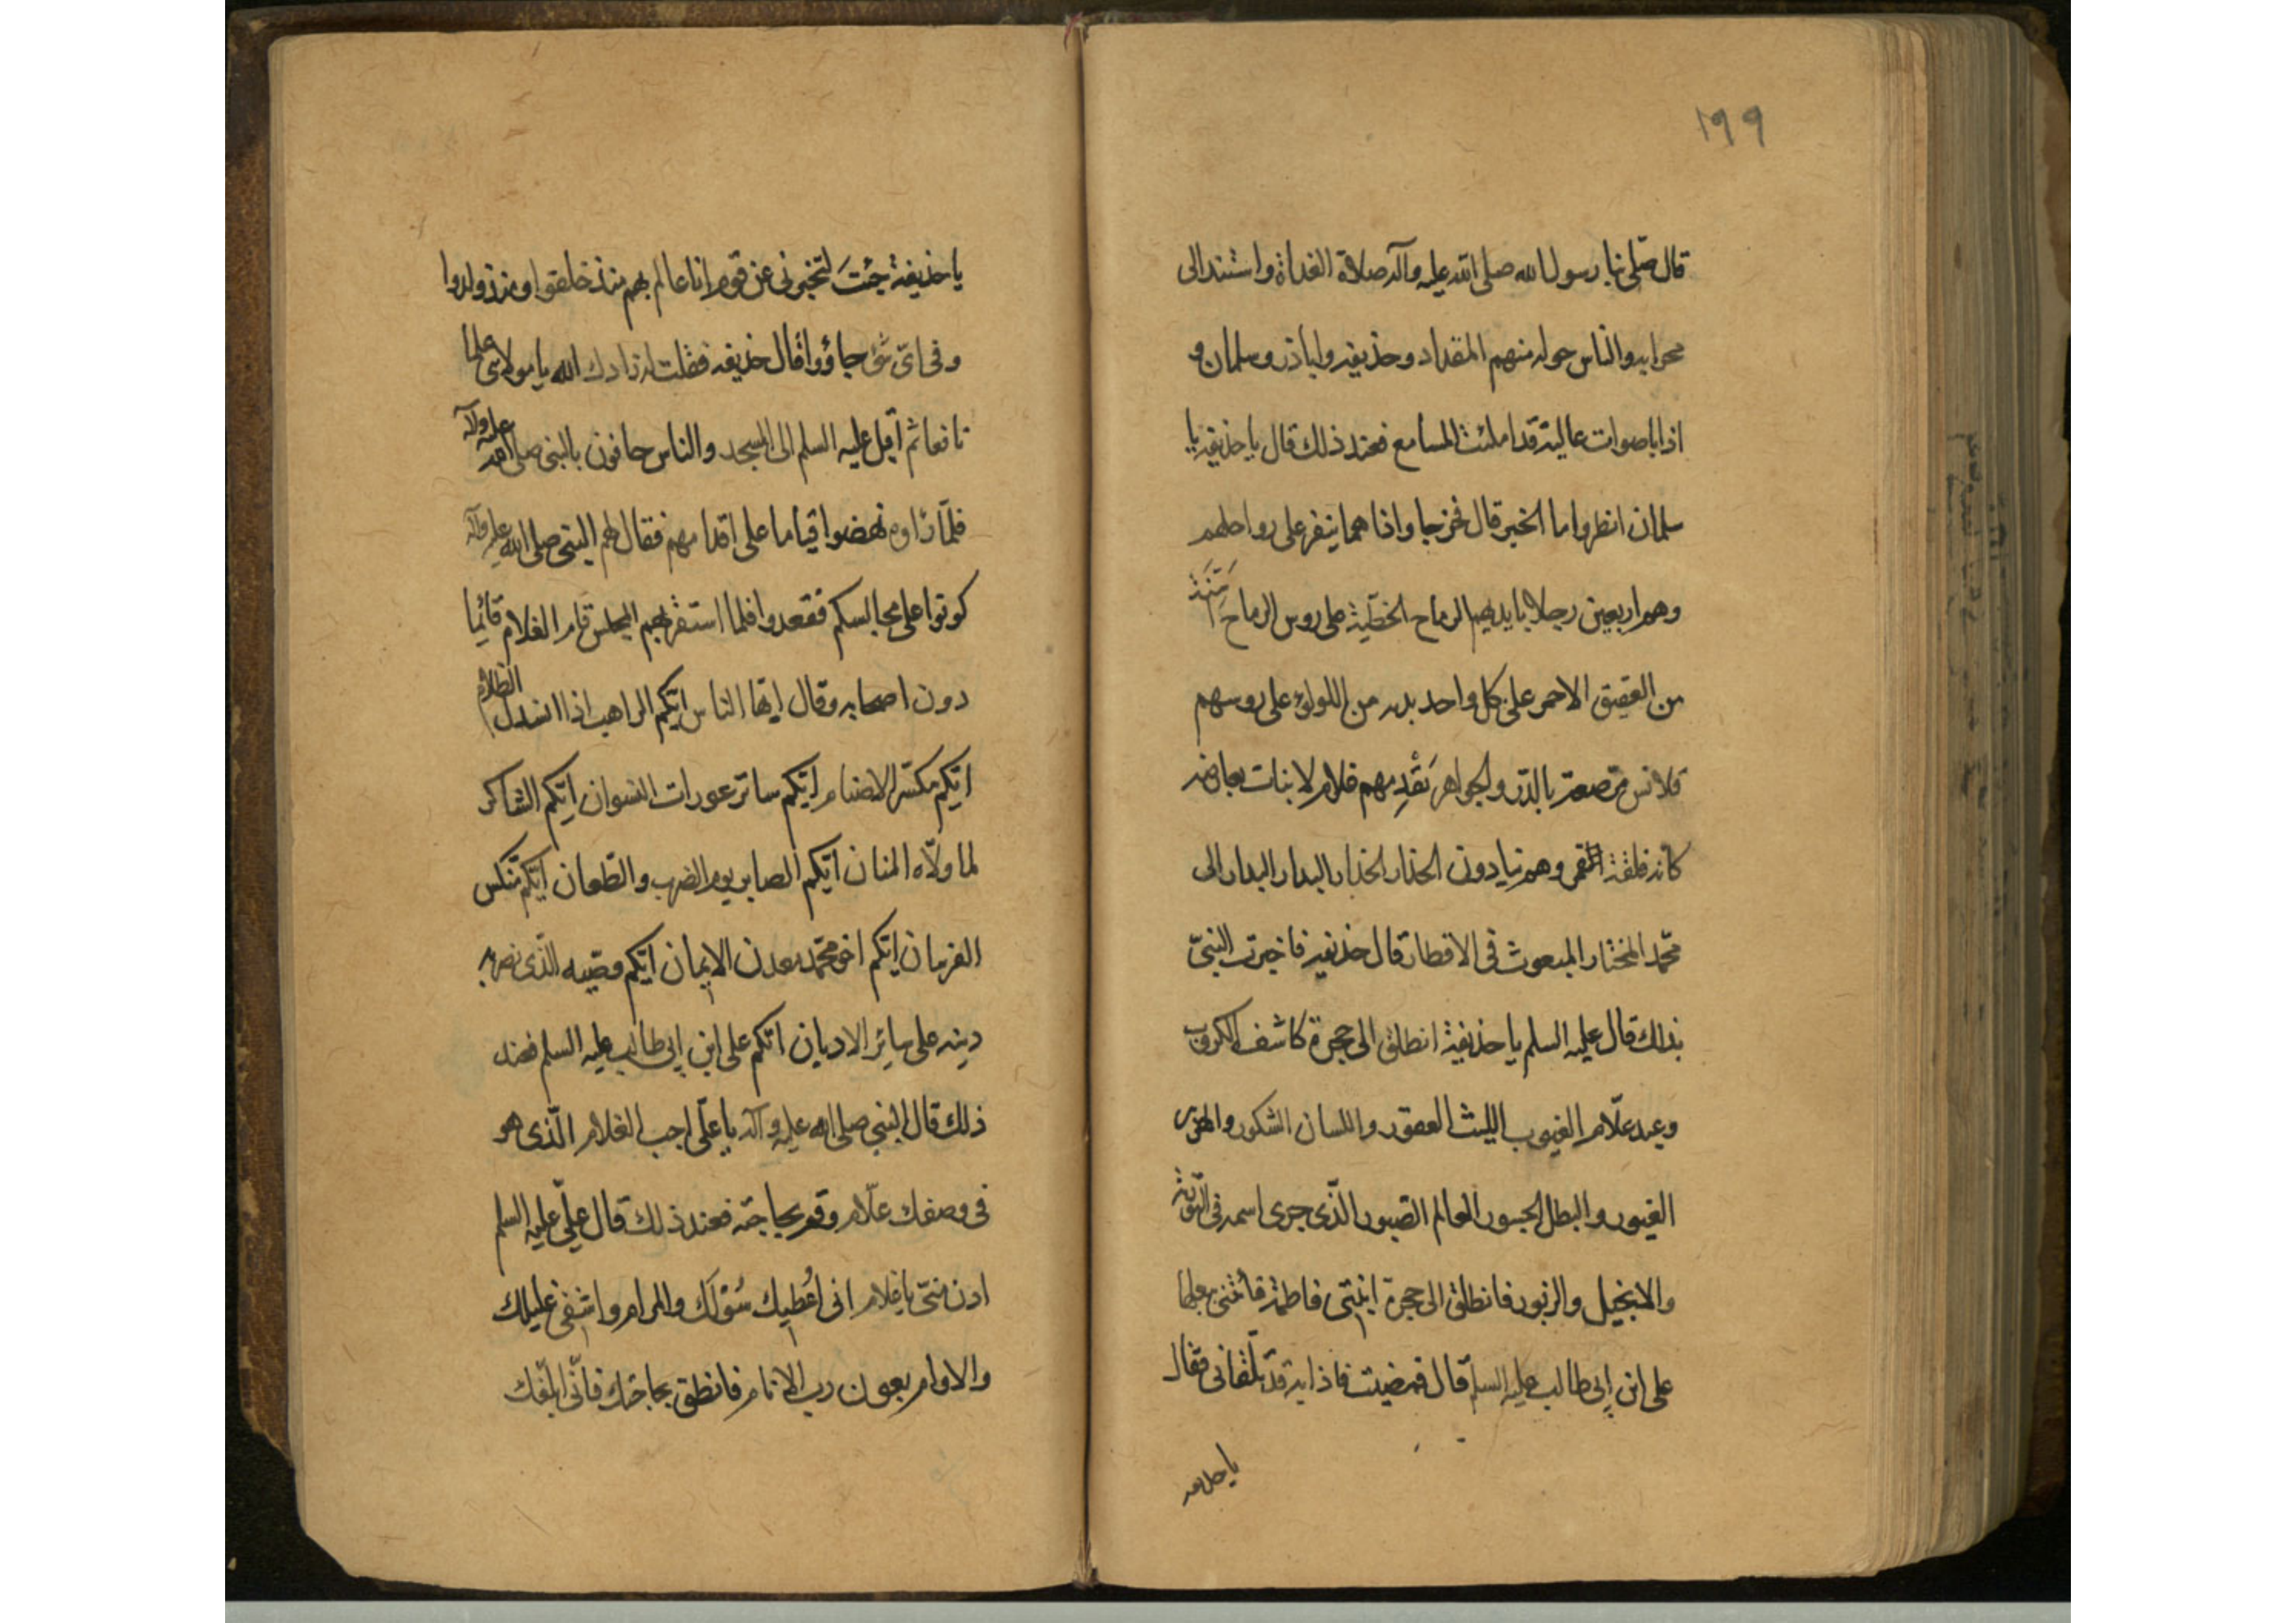 ١٩٩
قال صلى بنا رسول الله صلى الله عليه وآله صلاة الغداة واستند الى
محرابه والناس حوله منهم المقداد وحذيفه واباذر وسلمان و
اذا باصوات عالية قد املئت المسامع فعند ذلك قال يا حذيفه يا
سلمان انظروا ما الخبر قال فخرجا واذا هما بنفر على رواحلهم
وهم اربعين رجلا بايديهم الرماح الخطّية على روس الرماح اسنة
من العقيق الاحمر على كل واحد بدنه من اللولؤ على روسهم
قلانس مرصعة بالدّر والجواهر يَقْدِمهم غلام لا بنات بعارضه
كانه فلقة القمر وهم ينادون الحذار الحذار البدار البدار الى
محمّد المختار المبعوث فى الاقطار قال حذيفه فاخبرت النبىّ
بذلك قال عليه السلم يا حذيفة انطلق الى حجرة كاشف الكروب
وعبد علّام الغيوب الليث العقور واللسان الشكور والهزبر
الغيور والبطل الجسور العالم الصبور الذّى جرى اسمه فى التورية
والانجيل والزبور فانطلق الى حجرة ابنتى فاطمة فأتنى ببعلها
على ابن ابى طالب عليه السلم قال فمضيت فاذا به قد تلقانى فقال
يا حذيفه
يا حذيفة جئتَ لتخبرنى عن قوم انا عالم بهم منذ خلقوا ومنذ ولدوا
وفى اىّ شئ جاؤوا قال حذيفه فقلت له زادك الله يا مولاى علما
نافعا ثم اقبل عليه السلم الى المسجد والناس حافون بالنبى صلى الله عليه وآله
فلمّا رَاوه نهضوا قياما على اقدامهم فقال لهم النبى صلى الله عليه وآله
كونوا على مجالسكم فقعدوا فلما استقر بهم المجلس قام الغلام قائِما
دون اصحابه وقال ايها الناس ايّكم الراهب اذا انسدل الظلام
ايّكم مكسّر الاصنام ايّكم ساتر عورات النسوان ايّكم الشاكر
لما ولّاه المنان ايّكم الصابر يوم الضرب والطّعان ايّكم منكّس
الفرسان ايّكم اخو محمّد معدن الايمان ايّكم وصّيه الّذى نصر به
دينه على سائر الاديان ايّكم على ابن ابى طالب عليه السلم فعند
ذلك قال النبى صلى الله عليه وآله يا علّى اجب الغلام الّذى هو
فى وصفك علّام وقم بحاجته فعند ذلك قال علّى عليه السلم
ادن منّى يا غلام انى اُعْطيك سُؤلَك والمرام واشفى غليلك
والاوام بعون رب الانام فانطق بحاجتك فانّى ابلّغك